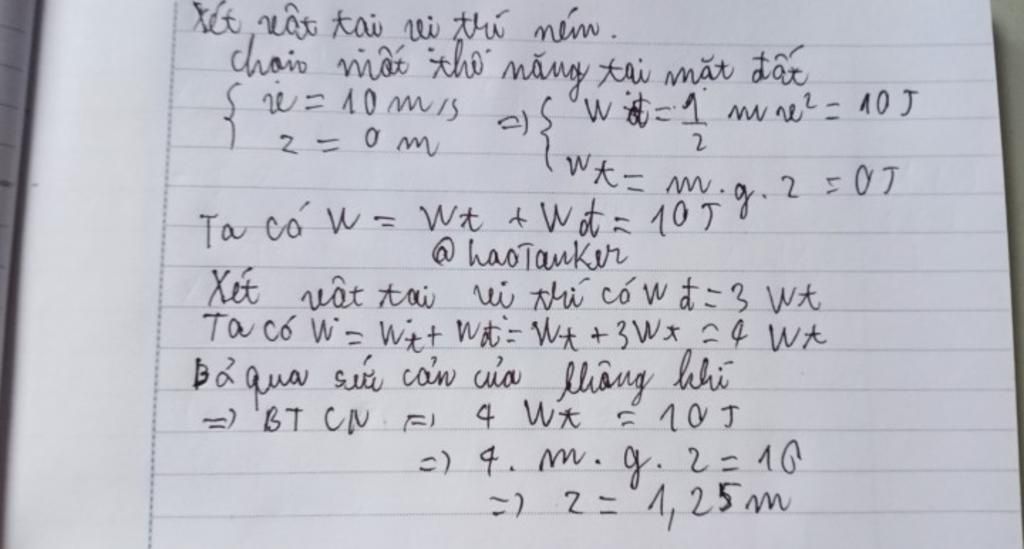 Xét vật tại vị trí ném.
Chọn mốc thế năng tại mặt đất
{ v = 10 m/s => { Wđ = 1/2 mv² = 10 J
z = 0 m Wt = m.g.z = 0J
Ta có W = Wt + Wđ = 10 J
@haoTanker
Xét vật tại vị trí có Wđ = 3 Wt
Ta có W = Wt + Wđ = Wt + 3Wt = 4 Wt
Bỏ qua sức cản của không khí
=> BT CN => 4 Wt = 10 J
=> 4. m. g. z = 10
=> z = 1,25m